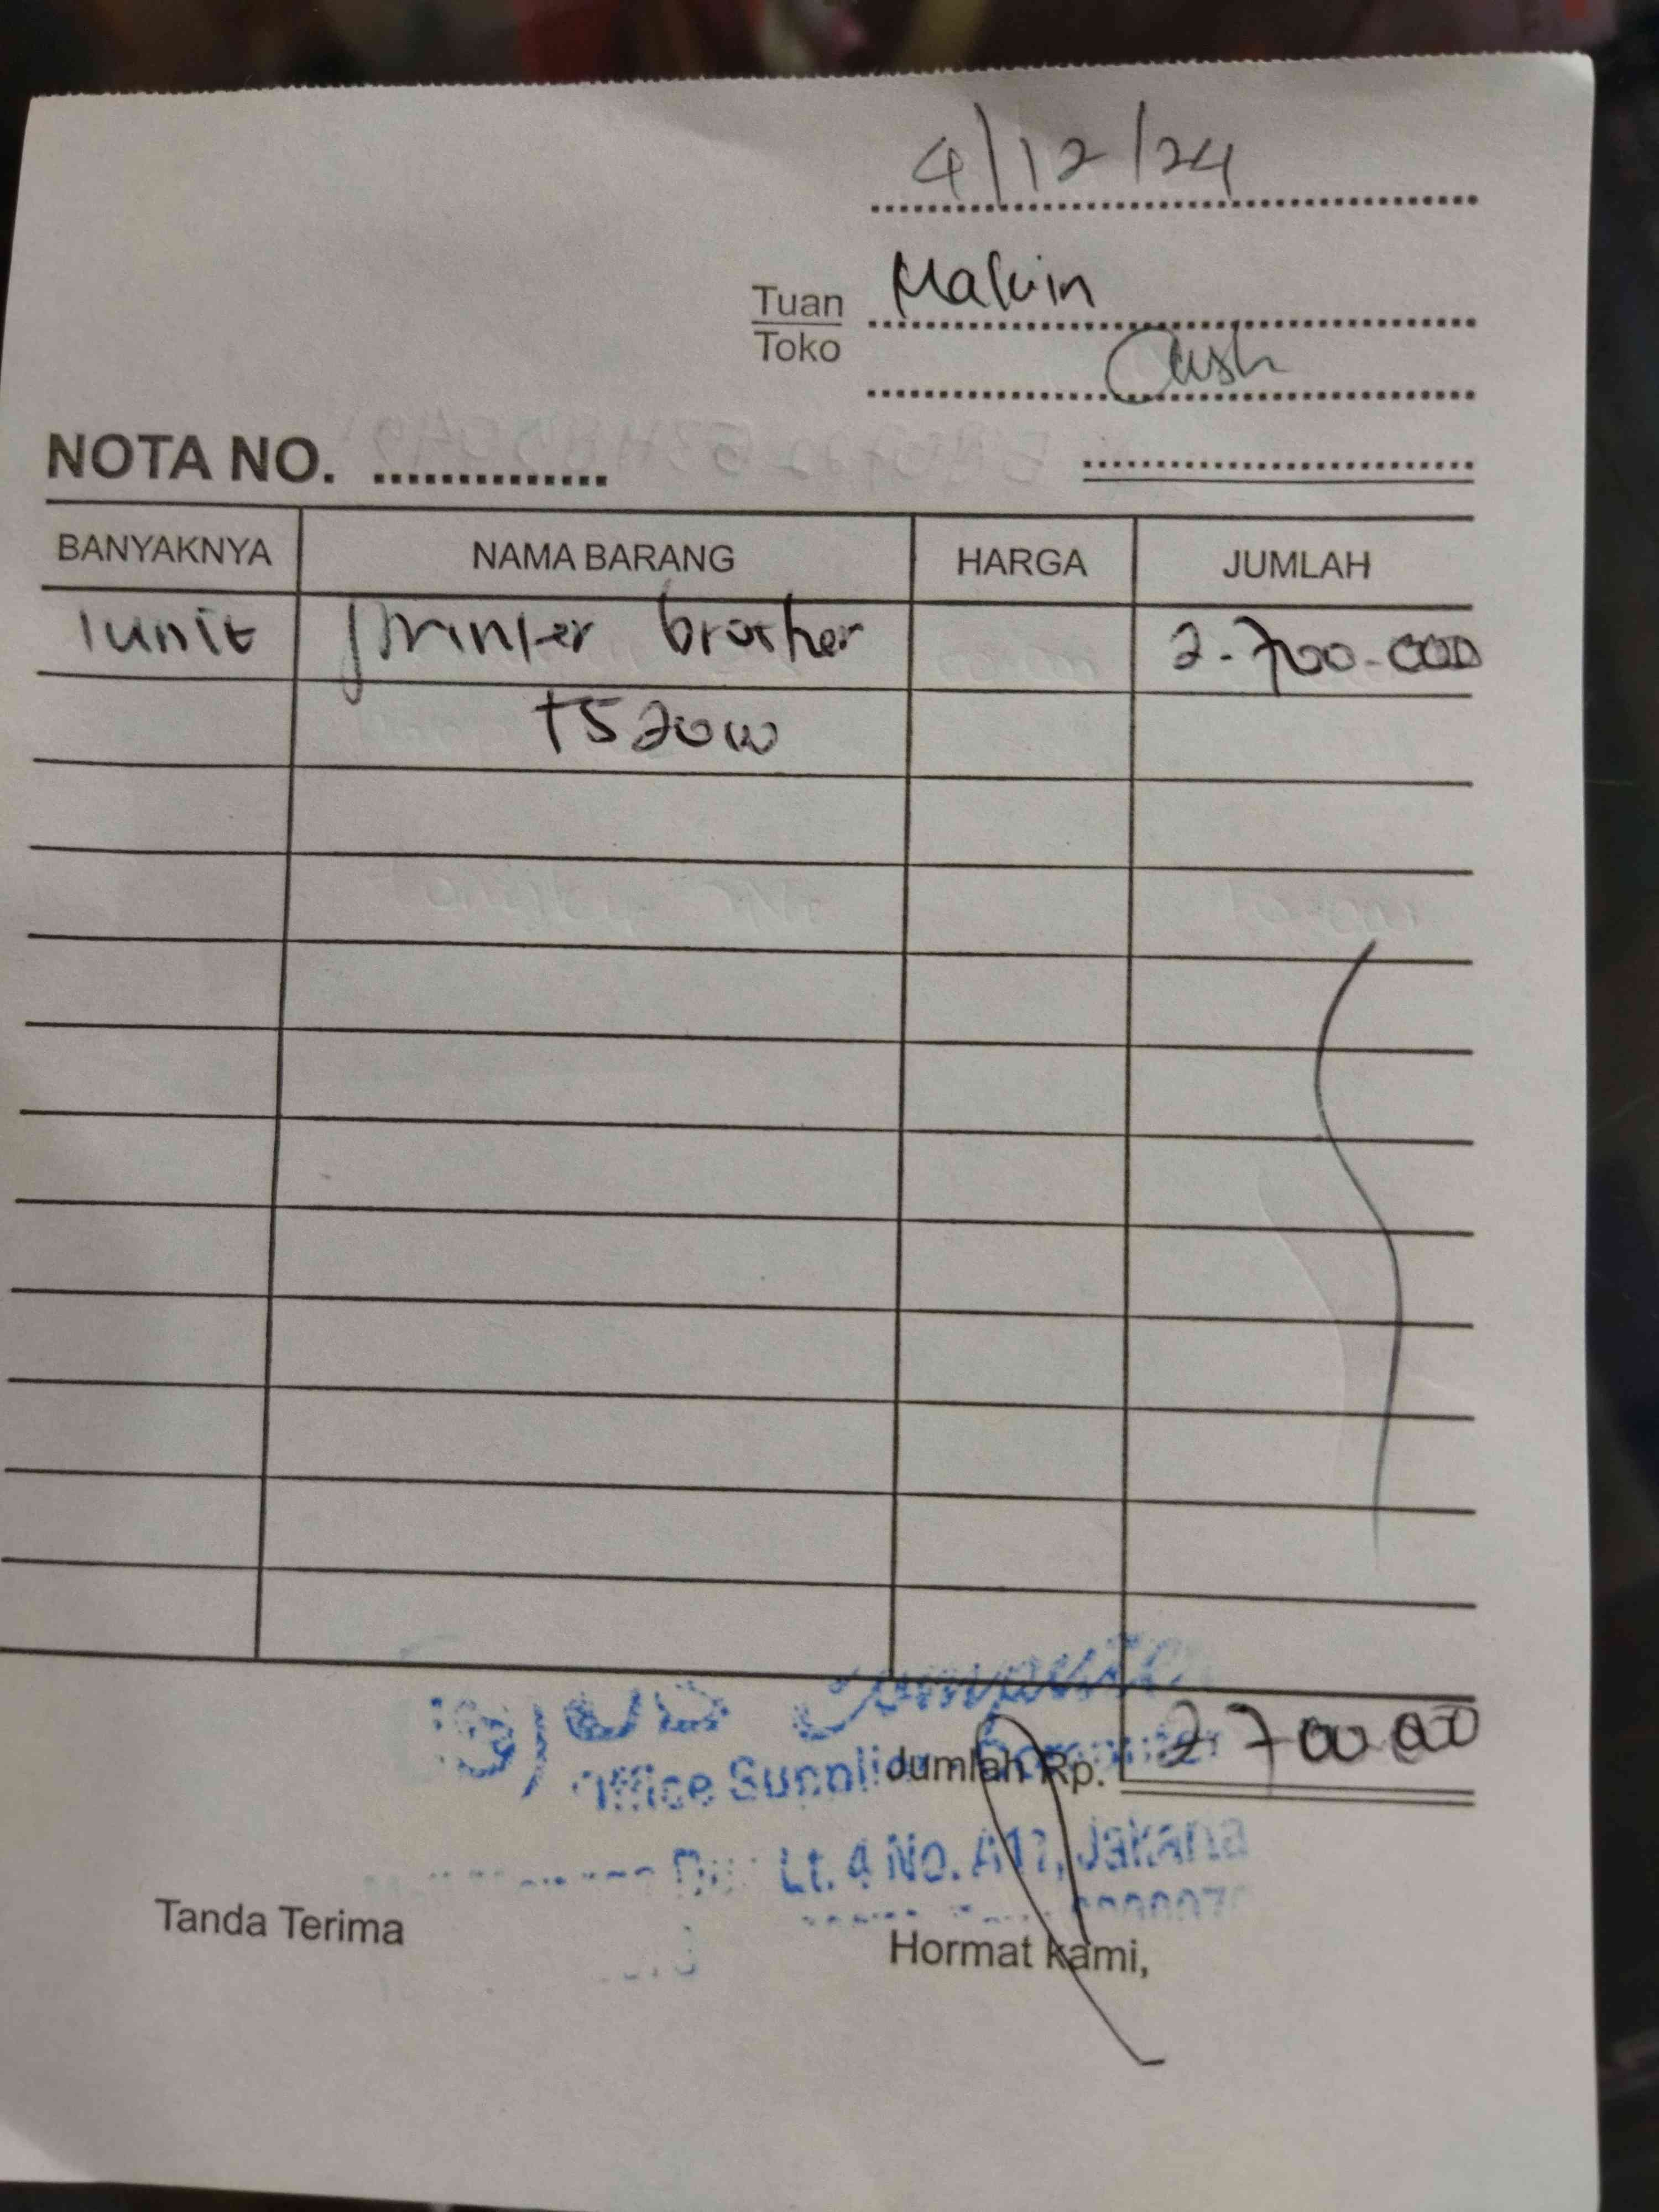 4/12/24
Tuan Malvin
Toko Cash
NOTA NO. ..............
BANYAKNYA NAMA BARANG HARGA JUMLAH
1unit printer brother 2.700.000
T520W
Office
Jumlah Rp. 2 700 000
Lt. 4 No. Jakarta
Tanda Terima
Hormat kami,